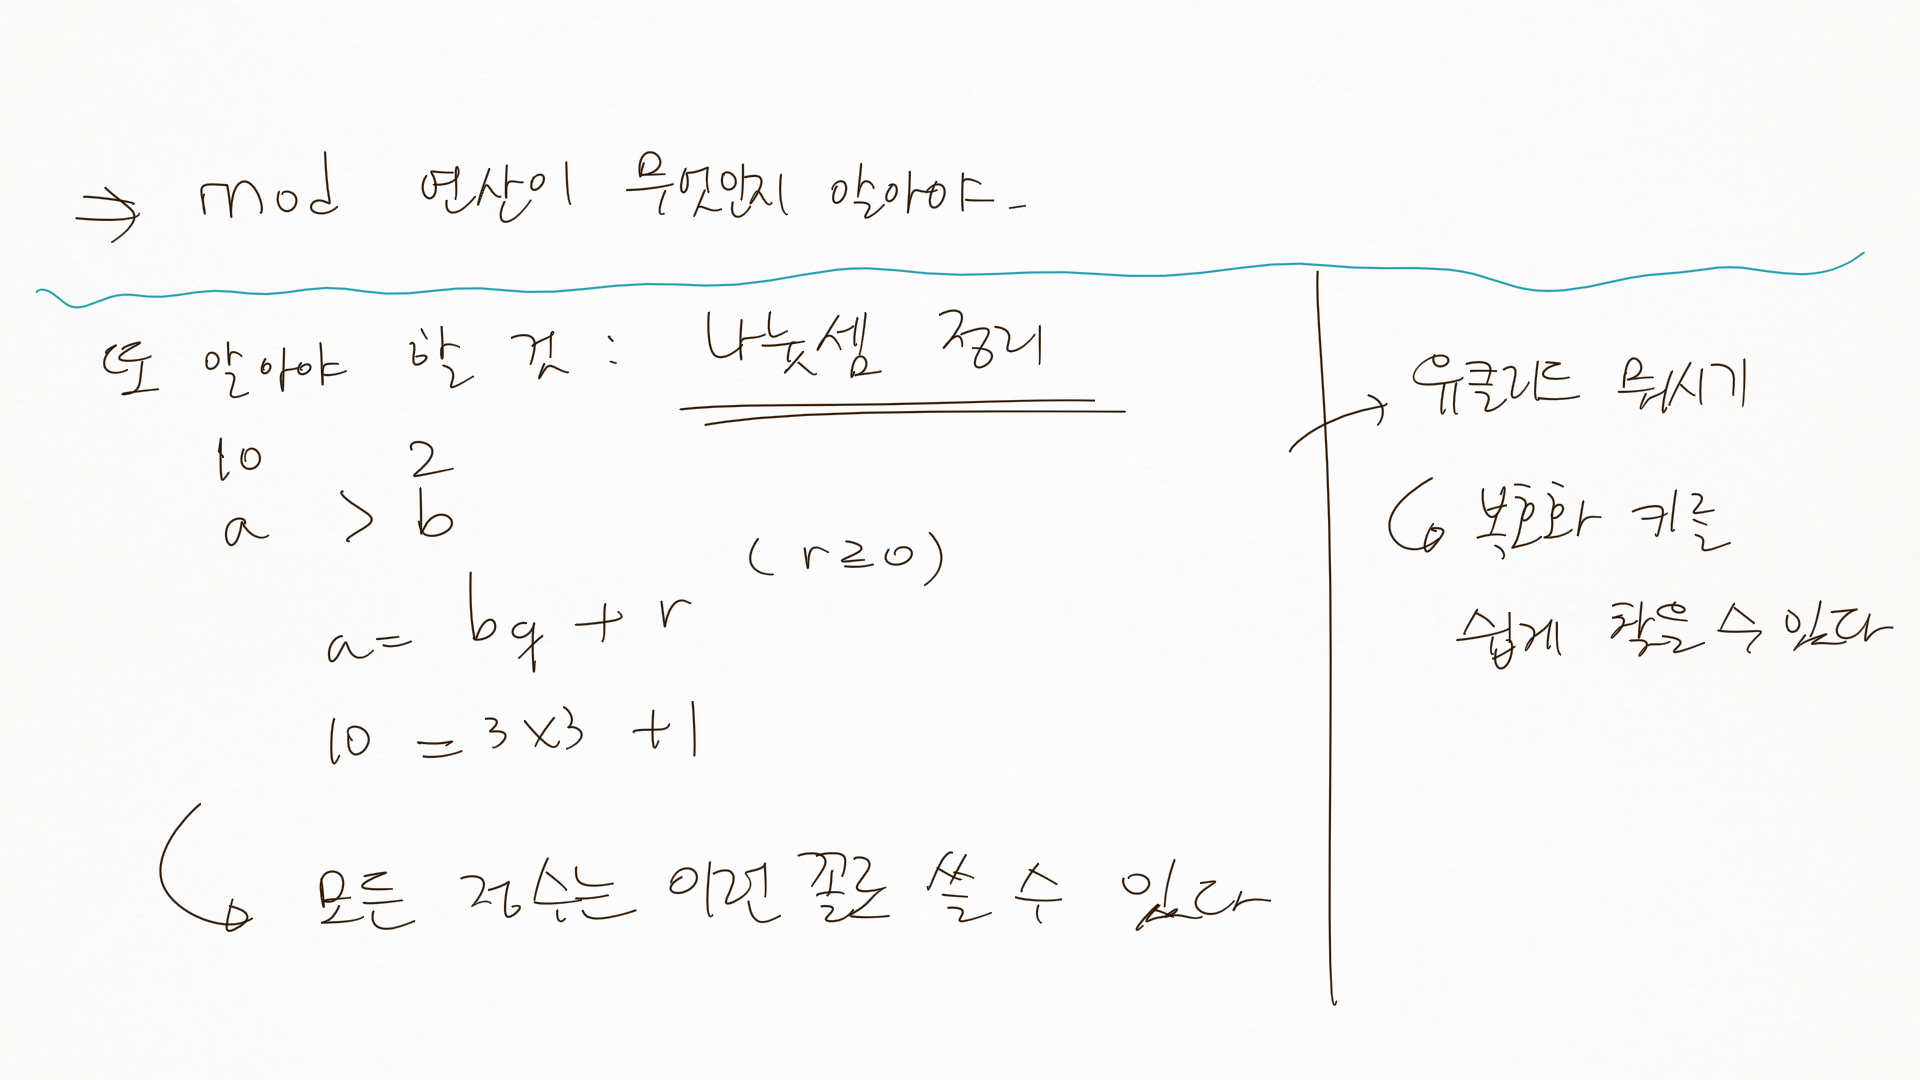 ⇒ mod 연산이 무엇인지 알아야_
또 알아야 할 것 : 나눗셈 정리
10 2
a > b
(r ≥ 0)
a = bq + r
10 = 3 x 3 + 1
모든 정수는 이런 꼴로 쓸 수 있다
→ 유클리드 뭐시기
복호화 키를
쉽게 찾을 수 있다